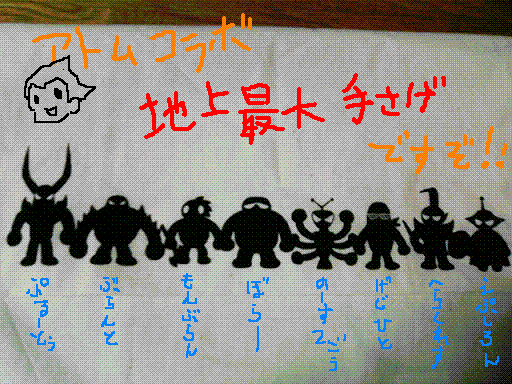 アトムコラボ
地上最大 手さげ
ですぞ!!
ぷるーとぅ
ぶらんど
もんぶらん
ぼらー
のーす2ごう
げじひと
へらくれす
えぷしろん